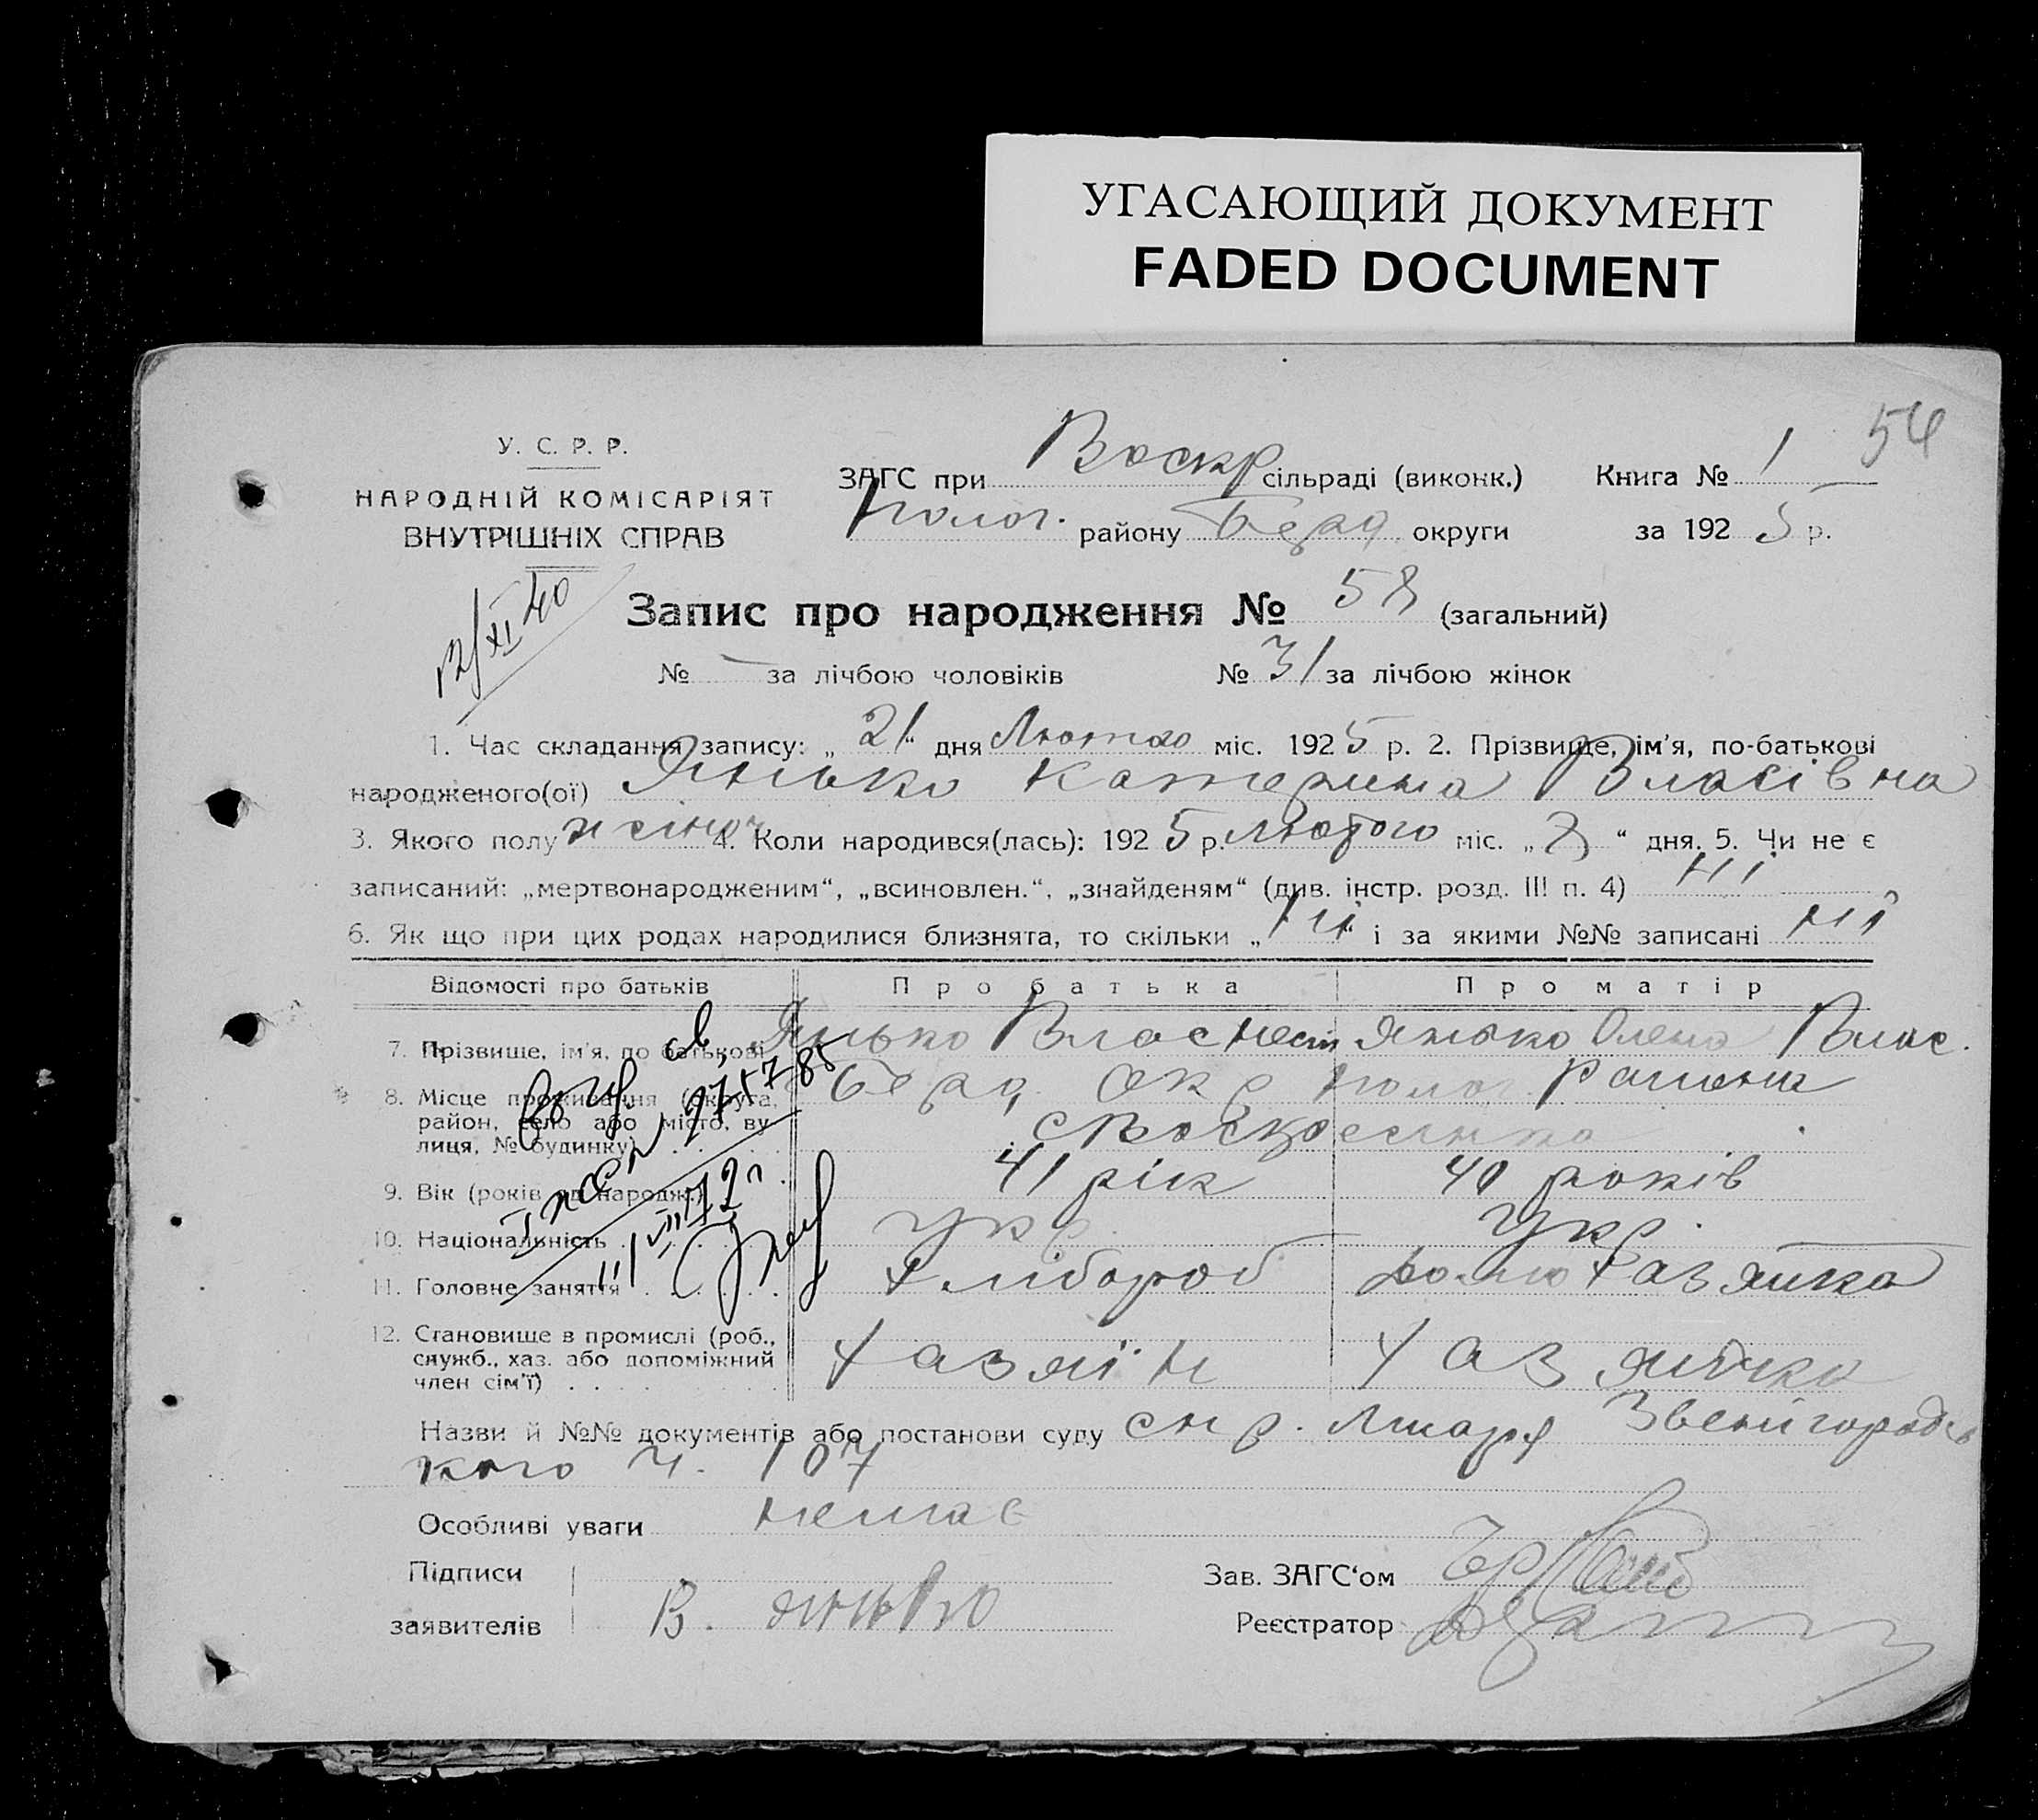 УГАСАЮЩИЙ ДОКУМЕНТ
FADED DOCUMENT
54
У. С. Р. Р.
НАРОДНІЙ КОМІСАРІЯТ
ВНУТРІШНІХ СПРАВ
ЗАГС при Воскр сільраді (виконк.) Книга № 1
Полог. району Берд округи за 1925 р.
12/XI 40
Запис про народження № 58 (загальний)
№ — за лічбою чоловіків № 31 за лічбою жінок
1. Час складання запису: „21“ дня Лютаго міс. 1925 р. 2. Прізвище, ім'я, по-батькові
народженого(ої) Янько Катерина Власівна
3. Якого полу жіноч 4. Коли народився(лась): 1925 р. Лютого міс. „8“ дня. 5. Чи не є
записаний: „мертвонародженим“, „всиновлен.“, „знайденям“ (див. інстр. розд. III п. 4) ні
6. Як що при цих родах народилися близнята, то скільки „ні“ і за якими №№ записані ні
Відомості про батьків Про батька Про матір
7. Прізвище, ім'я, по батькові Янько Влас Нест Янько Олена Влас.
8. Місце проживання (округа, район, село або місто, вулиця, № будинку) Берд Окр Полог. Району
с Воскресенка
9. Вік (років від народж.) 41 рік 40 років
10. Національність Укр. Укр.
11. Головне заняття Хлібороб домохазяйка
12. Становище в промислі (роб., служб., хаз. або допоміжний член сім'ї) Хазяїн Хазяйка
Назви й №№ документів або постанови суду спр. Лікаря Звенигородсь
кого ч. 107
Особливі уваги немає
Підписи
заявителів В. Янько
Зав. ЗАГС'ом
Реєстратор